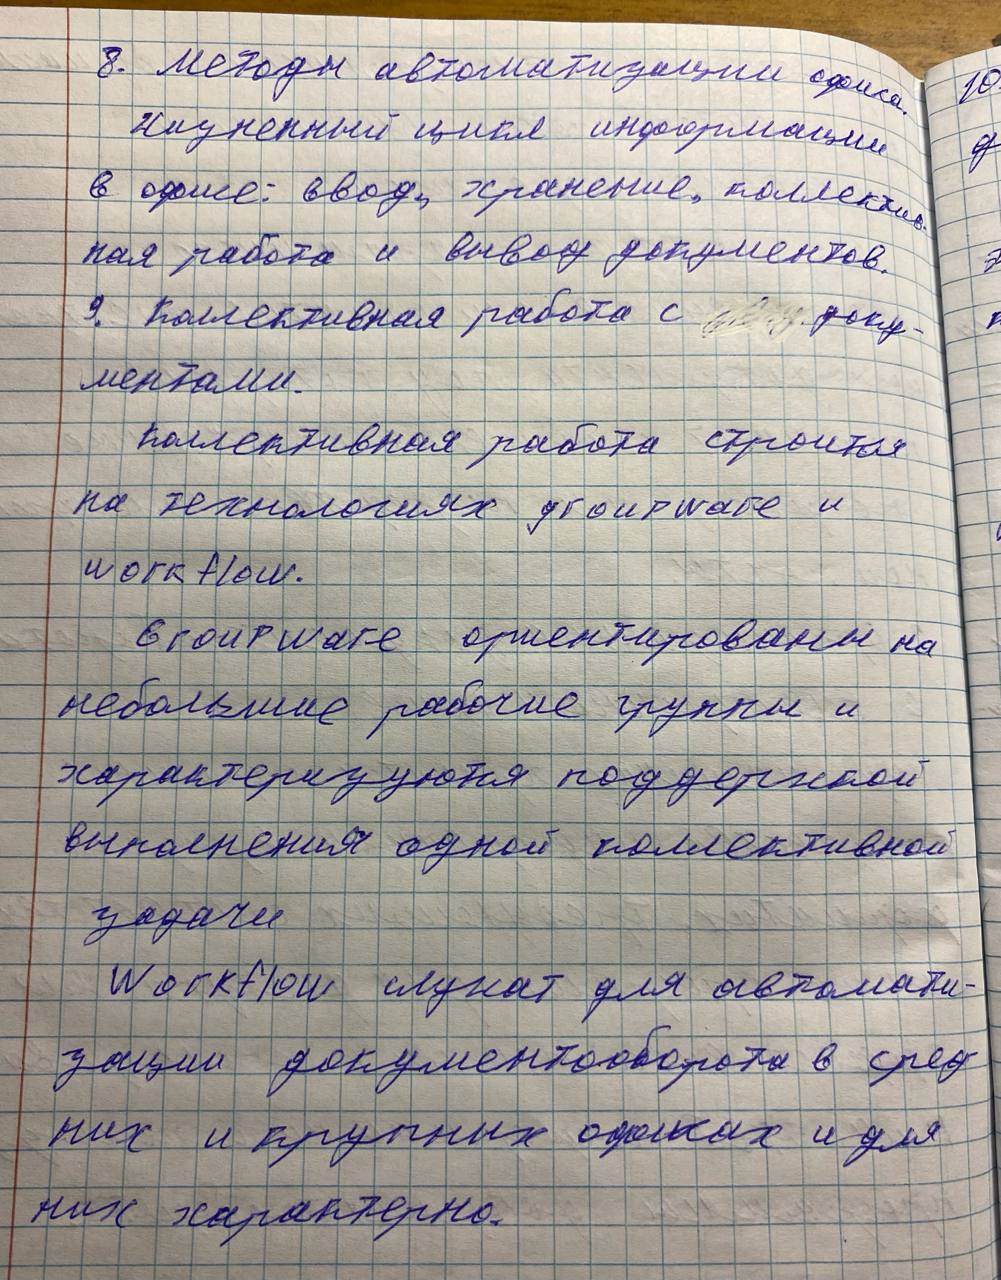 8. Методы автоматизации офиса.
Жизненный цикл информации
в офисе: ввод, хранение, коллектив-
ная работа и вывод документов.
9. Коллективная работа с доку-
ментами.
Коллективная работа строится
на технологиях groupware и
workflow.
Groupware ориентированы на
небольшие рабочие группы и
характеризуются поддержкой
выполнения одной коллективной
задачи
Workflow служат для автомати-
зации документооборота в сред
них и крупных офисах и для
них характерно.
10.